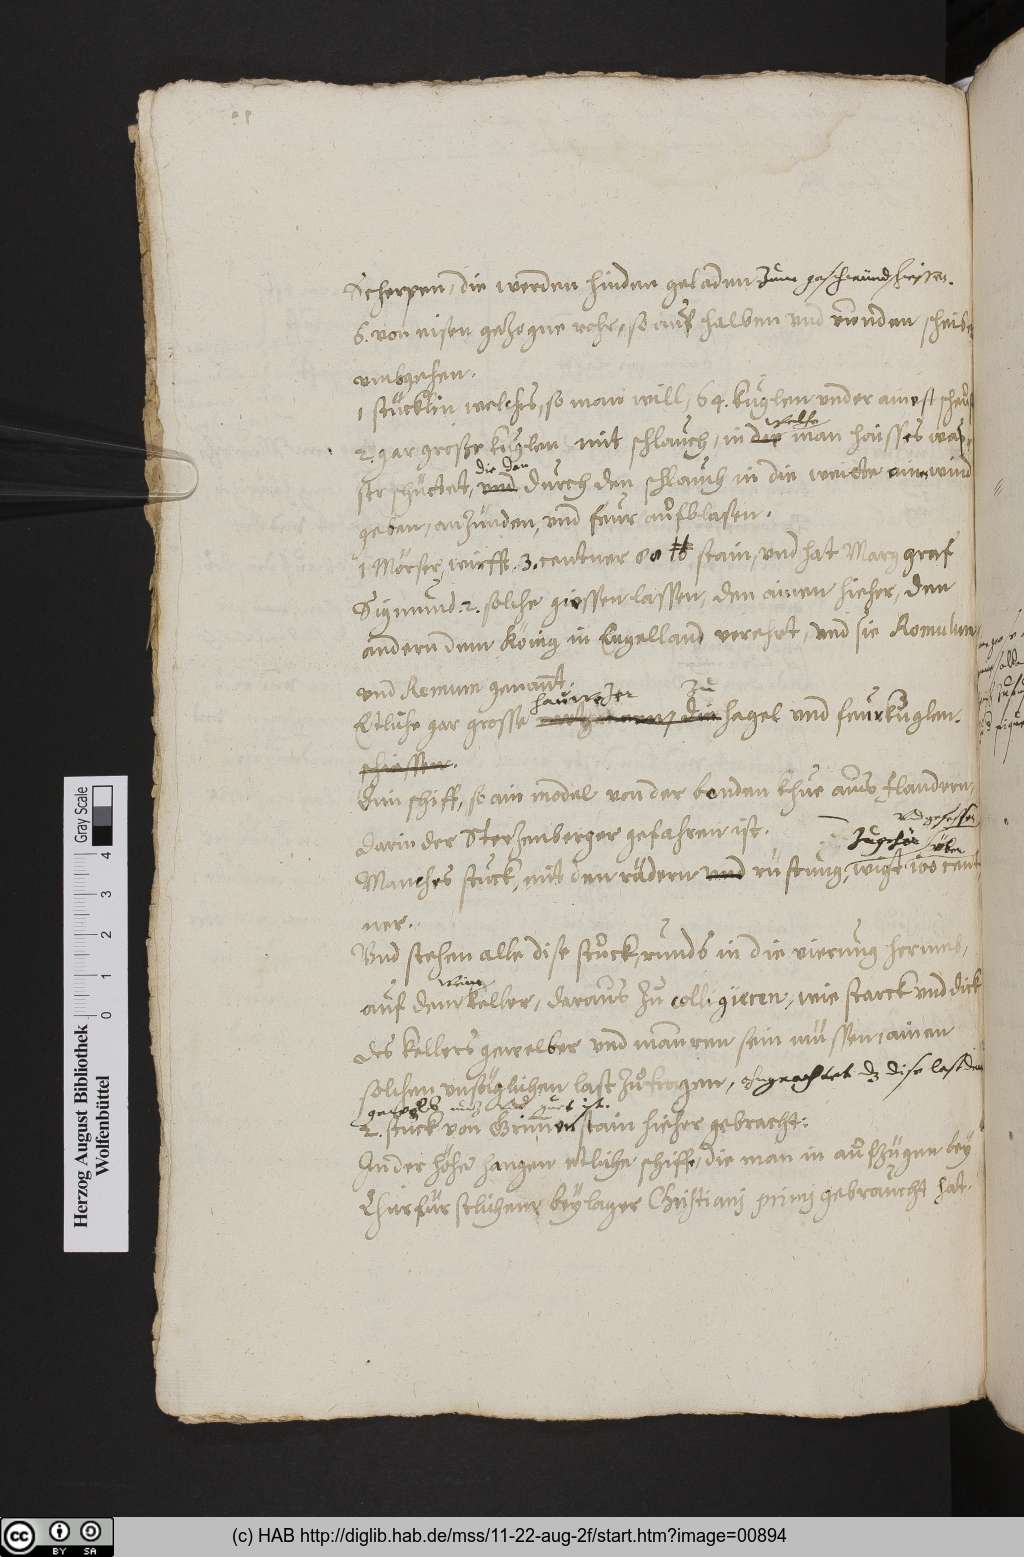 Scherpen, die werden hinden geladen zum geschwind schiessen.
6. von eisen gezogne rohr, so auf halben und runden scheiben
umbgehen.
1 stücklin welches, so man will, 64. kuglen under ainest scheust
welche
2. gar grosse kuglen mit schlauch, in die man haisses was-
die den
ser schüttet, und durch den schlauch in die weitte ein wind
geben, anzünden, und feur aufblasen.
1 Mörser, wirfft 3. centner stain, und hat Marggraf
Sigmund 2. solche giessen lassen, den ainen hieher, den
andern dem König in Engelland verehrt, und sie Romulum
und Remum genannt.
zu
Etliche gar grosse die hagel und feurkuglen.
schiessen.
Ein schiff, so ain model von der aus Flandern,
darin der Sterzenberger gefahren ist.
und gefesse
zugehör über
Manches stuck, mit den rädern und rüstung, wigt 100 cent
ner.
Und stehen alle dise stuck, runds in die vierung herumb,
wein
auf dem keller, daraus zu colligieren, wie starck und dick
des kellers gewelber und mauren sein müssen, ainen
solchen unsäglichen last zu tragen, ohngeachtet dz dise last
gewelb ist.
2. stuck von Grimmenstain hieher gebracht:
In der höhe hangen etliche schiffe, die man in aufzügen bey
Churfürstlichem beylager Christiani primi gebraucht hat.
Herzog August Bibliothek
Wolfenbüttel
Gray Scale
0 1 2 3 4
cc BY SA
(c) HAB http://diglib.hab.de/mss/11-22-aug-2f/start.htm?image=00894